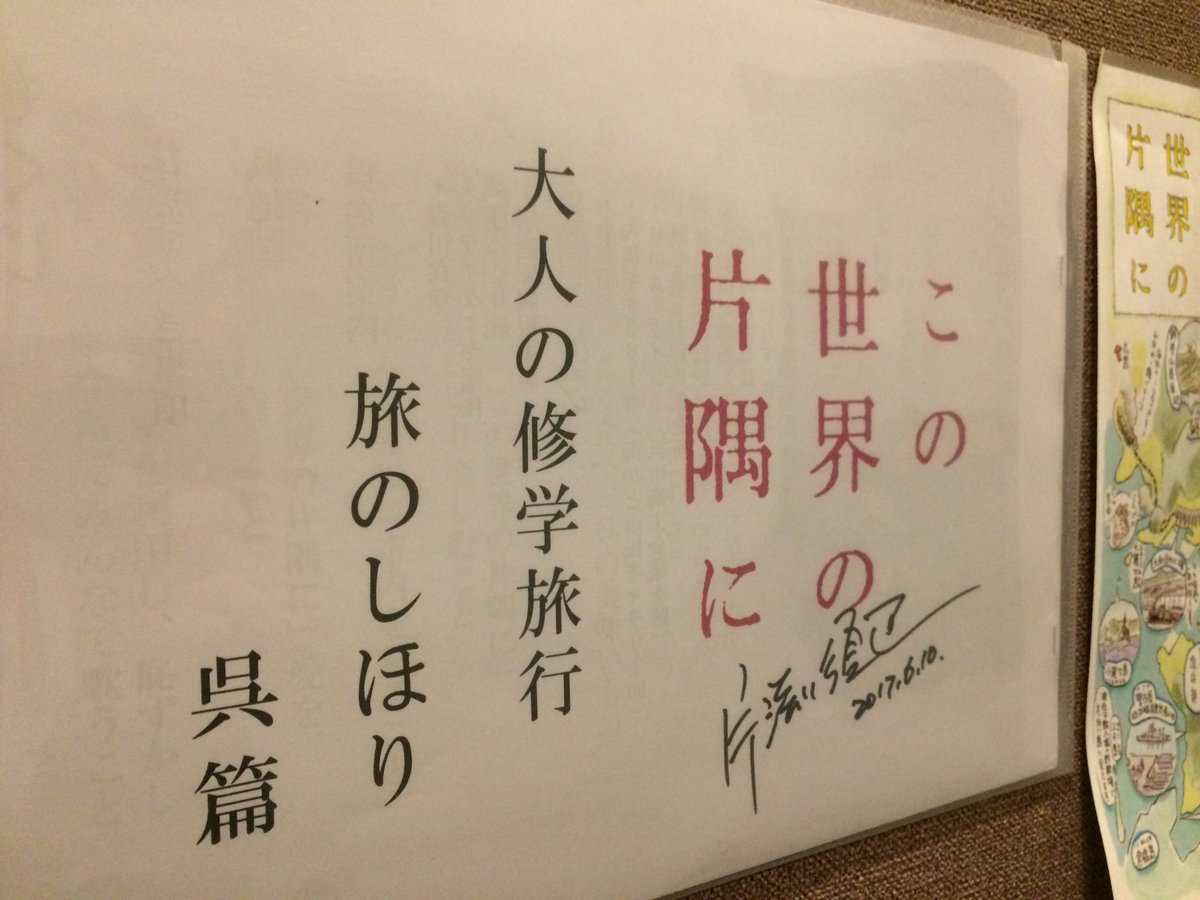 この
世界の
片隅に
大人の修学旅行
旅のしほり
呉篇
片渕須直
2017.6.10.
世界の
片隅に